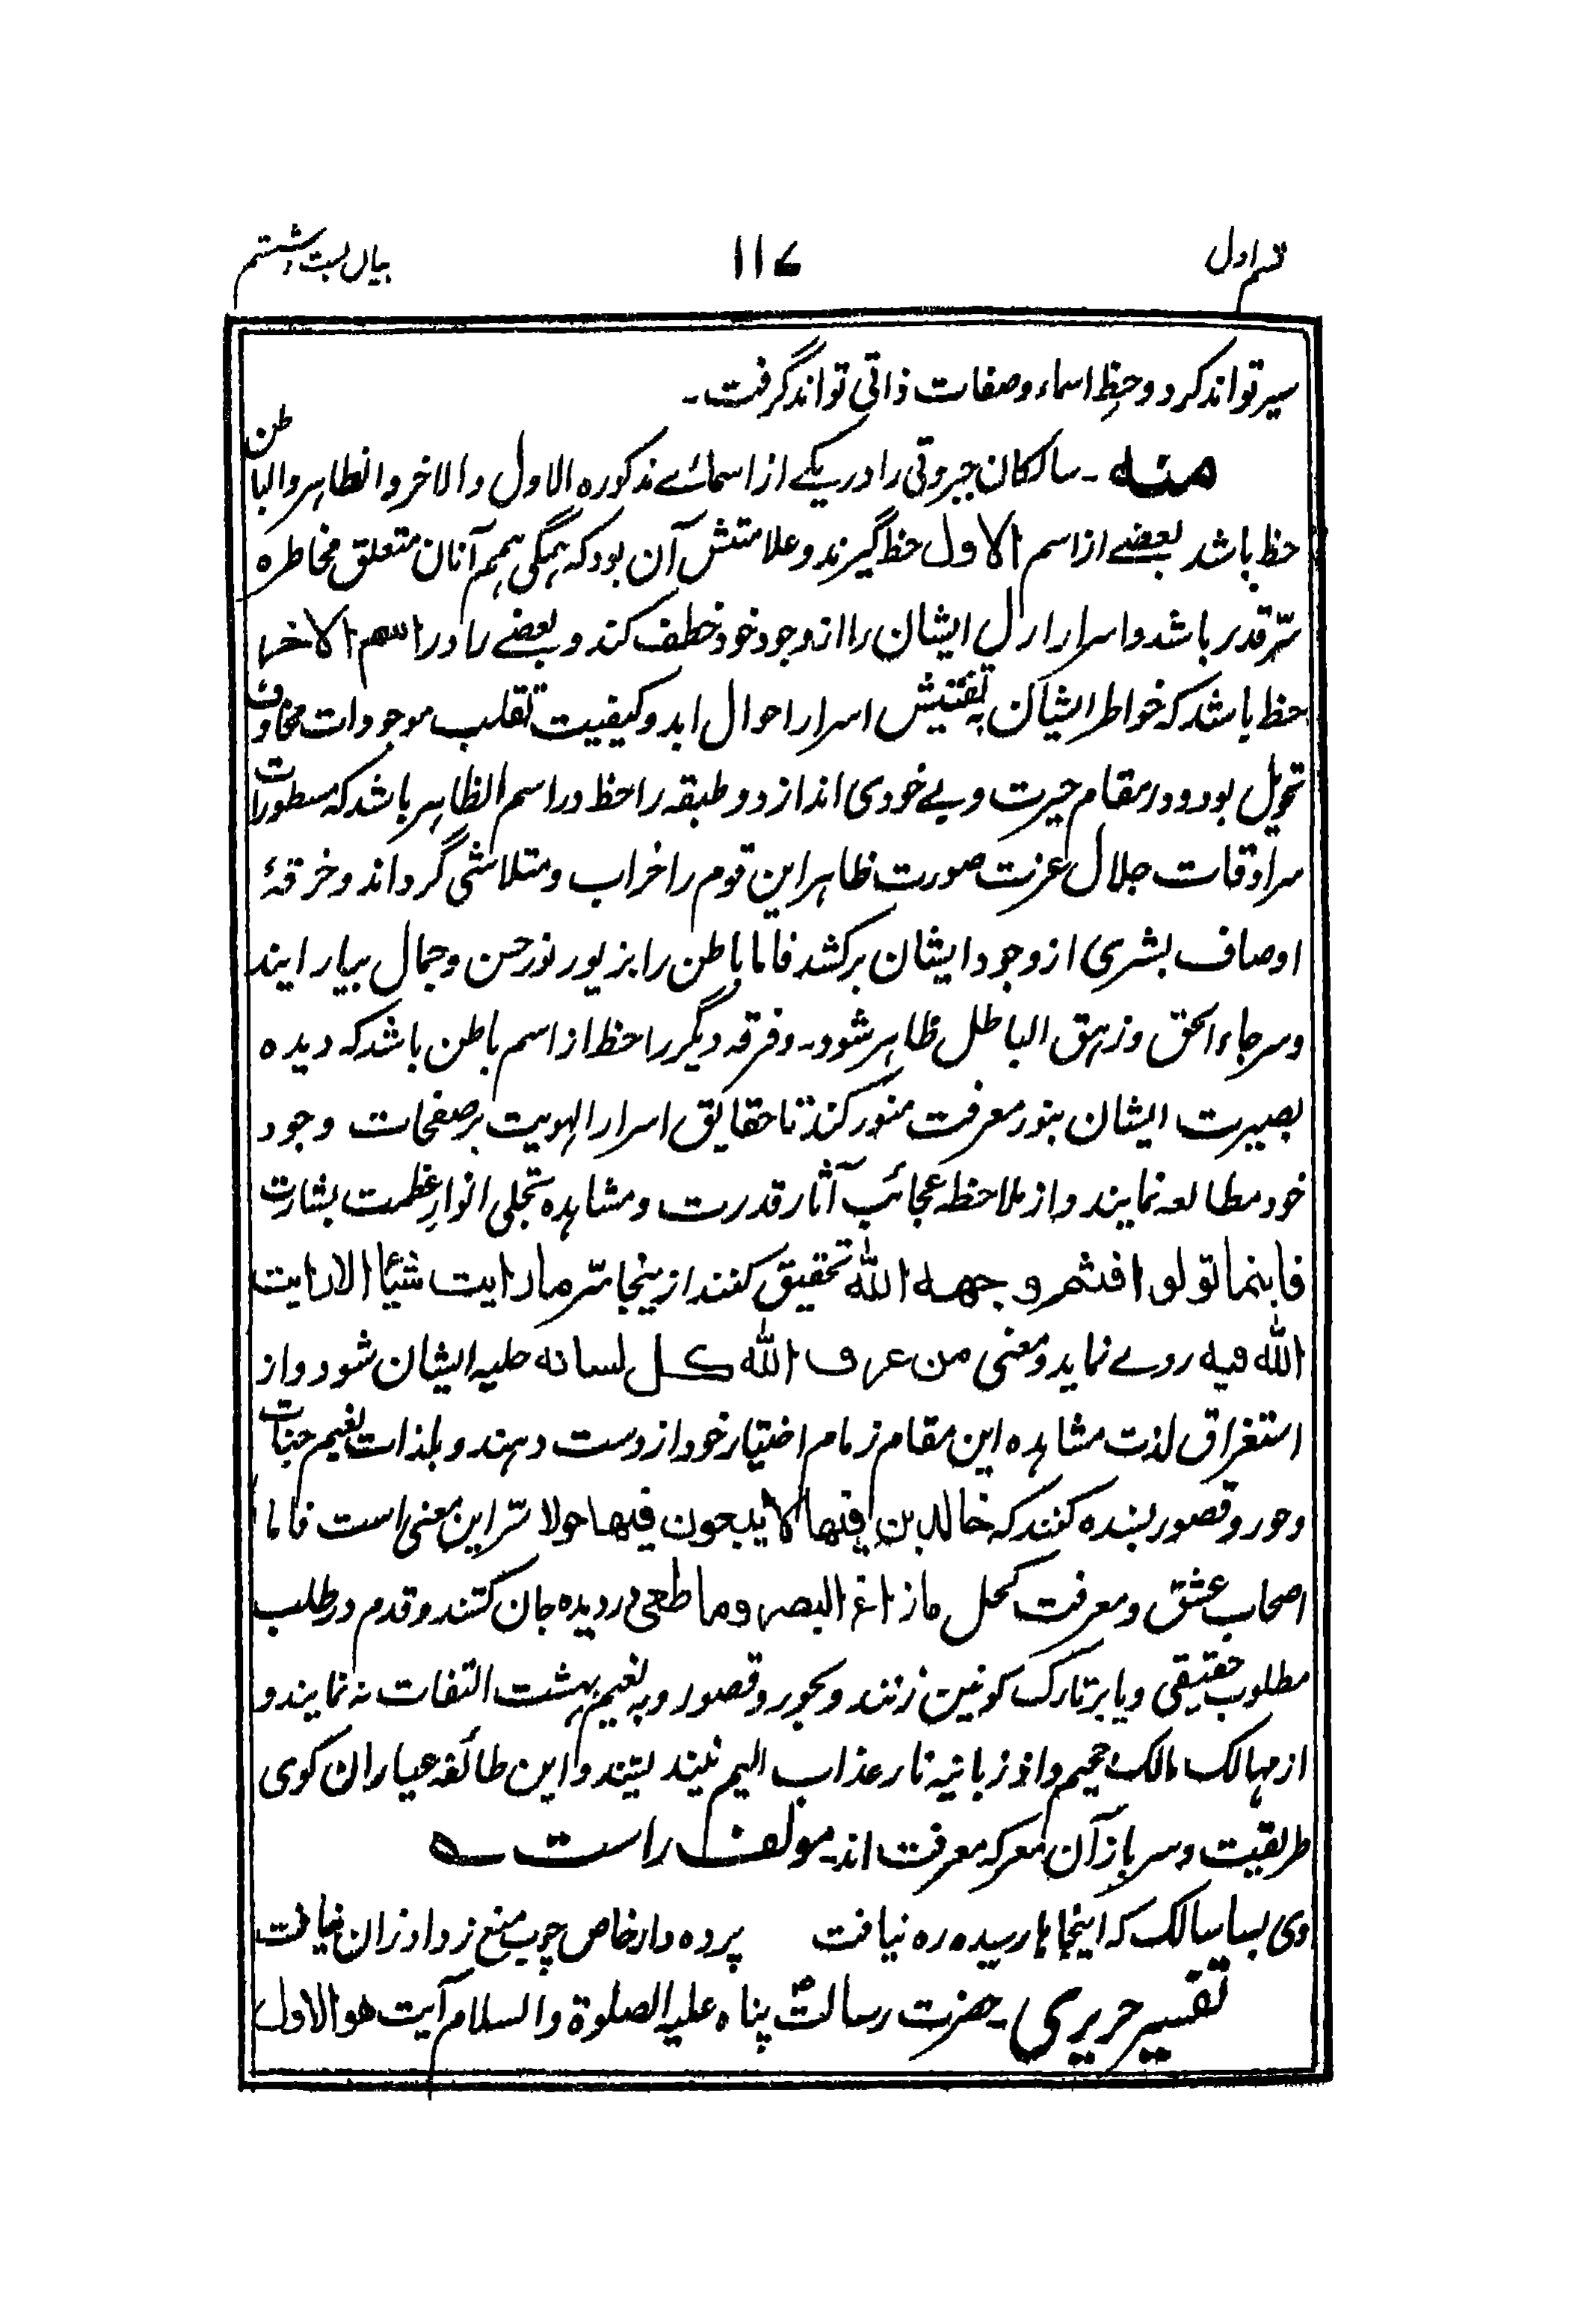 قسم اول ۱۱۷ بیان بست و ششم
سیر تواند کرد و حظِ اسماء و صفات ذاتی تواند گرفت۔
منه ۔ سالکان جبروتی را در یکے از اسمائے مذکوره الاول والاخر والظاہر والباطن
حظ باشد بعضے از اسم الاول حظ گیرند و علامتش آن بود کہ ہمگی ہمم آنان متعلق مخاطره
سّر قدر باشد و اسرار ازل ایشان را از وجود خود خطف کند و بعضے را در اسم الاخر
حظ باشد کہ خواطر ایشان بہ تفتیش اسرار احوال ابد و کیفیت تقلب موجودات
تحویل بود و در مقام حیرت و بے خودی اندازد و طبقہ را حظ در اسم الظاہر باشد کہ سطورات
سرادقات جلال عزت صورت ظاہر این قوم را خراب و متلاشی گرداند و خرقۂ
اوصاف بشری از وجود ایشان برکشد فاما باطن را بزیور نور حسن و جمال بیارایند
و سر جاء الحق و زہق الباطل ظاہر شود۔ و فرقہ دیگر را حظ از اسم باطن باشد کہ دیده
بصیرت ایشان بنور معرفت منور کند تا حقایق اسرار الہویت بر صفحات وجود
خود مطالعہ نمایند و از ملاحظہ عجائب آثار قدرت و مشاہده تجلی انوارِ عظمت بشارت
فاینما تولوا فثم وجهه الله تحقیق کنند ازینجا سّر ما رایت شیئا الا رایت
الله فیه روے نماید و معنی من عرف الله کل لسانه حلیہ ایشان شود و از
استغراق لذت مشاہده این مقام زمام اختیار خود از دست دہند و بلذات نعیم جنات
و حور و قصور بسنده کنند کہ خالدین فیها لا یبغون فیها حولا سّر این معنی است فاما
اصحاب عشق و معرفت کحل ما زاغ البصر و ما طغی در دیده جان کشند و قدم در طلب
مطلوب حقیقی و پا بر تارک کونین زنند و بحور و قصور و بہ نعیم بہشت التفات نہ نمایند و
از مہالک مالک جحیم و از زبانیہ نار عذاب الیم نیند یشند و این طائفہ عیاران کوی
طریقیت و سربازآن معرکہ معرفت اند۔ مولف راست ؎
وی بسا سالک کہ اینجا رسیده ره نیافت پرده دار خاص چوب منع زد او زان نیافت
تفسیر حریری ۔ حضرت رسالتؐ پناه علیہ الصلوة والسلام آیت هو الاول